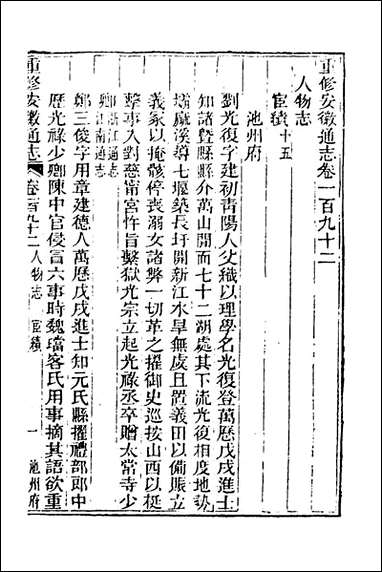 重修安徽通志卷一百九十二
人物志
宦績十五
池州府
劉光復字建初青陽人父織以理學名光復登萬歷戊戌進士
知諸暨縣縣介萬山開而七十二湖處其下流光復相度地勢
壩廠溪導七堰築長圩開新江水旱無虞且置義田以備賑立
義冢以掩骸停喪溺女諸弊一切革之擢御史巡按山西以梃
擊事入對慈甯宮忤旨繫獄光宗立起光祿丞卒贈太常寺少
卿浙江通志
江南通志
鄭三俊字用章建德人萬歷戊戌進士知元氏縣擢禮部郎中
歷光祿少卿陳中官侵言六事時魏璫客氏用事摘其語欲重
重修安徽通志
卷一百九十二人物志
宦績
一
池州府